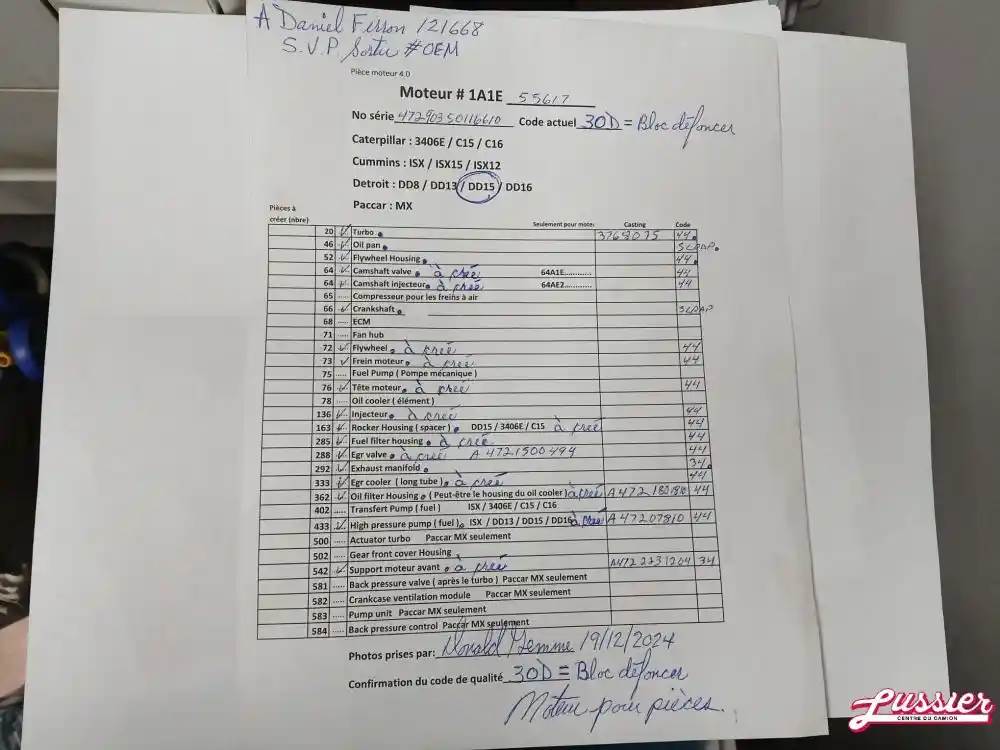 A Daniel Ferron 121668
S.V.P Sortir #OEM
Pièce moteur 4.0
Moteur # 1A1E 55617
No série 47290350116610 Code actuel 30D = Bloc défoncer
Caterpillar : 3406E / C15 / C16
Cummins : ISX / ISX15 / ISX12
Detroit : DD8 / DD13 / DD15 / DD16
Paccar : MX
Pièces à créer (nbre) Seulement pour moteu Casting Code
20 ✓ Turbo 3768075 44
46 ✓ Oil pan SCRAP
52 ✓ Flywheel Housing 44
64 ✓ Camshaft valve à créé 64A1E........... 44
64 ✓ Camshaft injecteur à créé 64AE2........... 44
65 ..... Compresseur pour les freins à air
66 ✓ Crankshaft SCRAP
68 ..... ECM
71 ..... Fan hub
72 ✓ Flywheel à créé 44
73 ✓ Frein moteur à créé 44
75 ..... Fuel Pump ( Pompe mécanique )
76 ✓ Tête moteur à créé 44
78 ..... Oil cooler ( élément )
136 ✓ Injecteur à créé 44
163 ✓ Rocker Housing ( spacer ) DD15 / 3406E / C15 à créé 44
285 ✓ Fuel filter housing à créé 44
288 ✓ Egr valve à créé A 4721500494 44
292 ✓ Exhaust manifold 34
333 ✓ Egr cooler ( long tube ) à créé 44
362 ✓ Oil filter Housing ( Peut-être le housing du oil cooler ) à créé A472 44
402 ..... Transfert Pump ( fuel ) ISX / 3406E / C15 / C16
433 ✓ High pressure pump ( fuel ) ISX / DD13 / DD15 / DD16 à créé A 47207810 44
500 ..... Actuator turbo Paccar MX seulement
502 ..... Gear front cover Housing
542 ✓ Support moteur avant à créé 34
581 ..... Back pressure valve ( après le turbo ) Paccar MX seulement
582 ..... Crankcase ventilation module Paccar MX seulement
583 ..... Pump unit Paccar MX seulement
584 ..... Back pressure control Paccar MX seulement
Photos prises par: Donald Gemme 19/12/2024
Confirmation du code de qualité 30D = Bloc défoncer
Moteur pour pièces.
Lussier
CENTRE DU CAMION